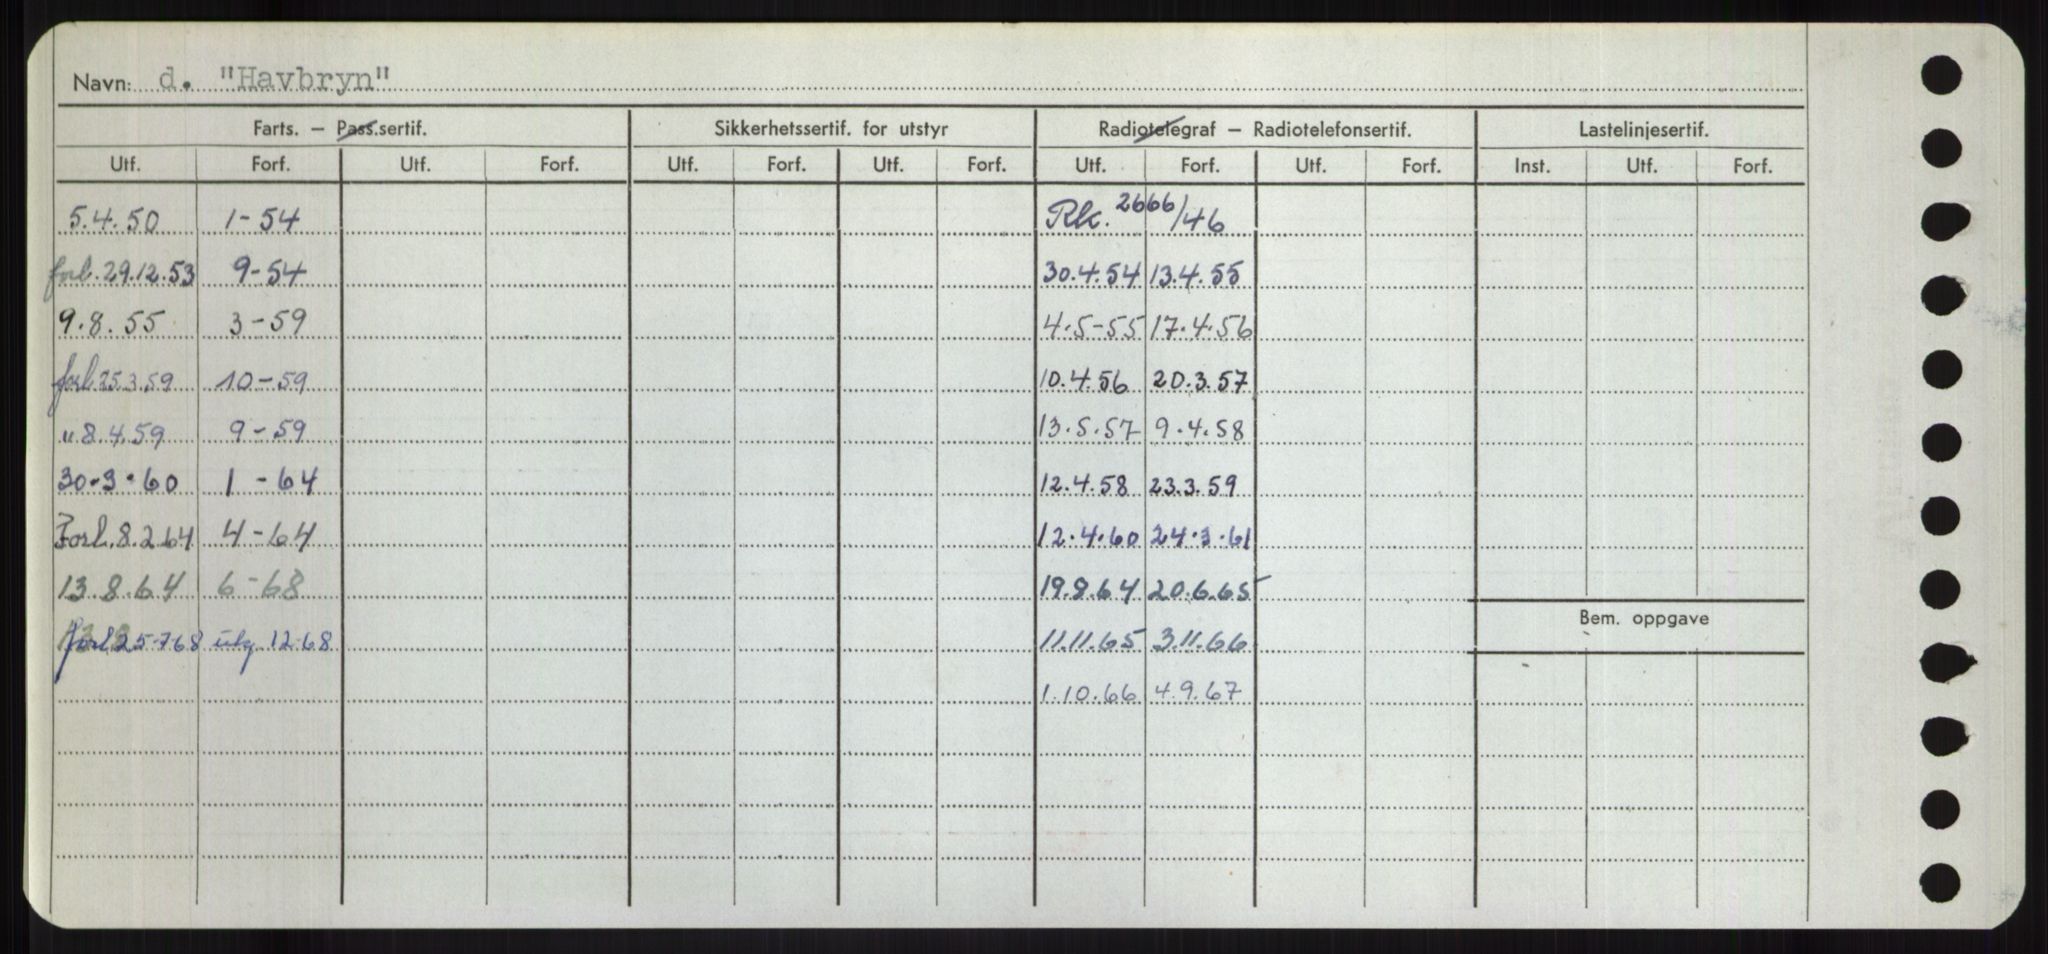 Navn: d. "Havbryn"
Farts. – Pass.sertif. Sikkerhetssertif. for utstyr Radiotelegraf – Radiotelefonsertif. Lastelinjesertif.
Utf. Forf. Utf. Forf. Utf. Forf. Utf. Forf. Utf. Forf. Utf. Forf. Inst. Utf. Forf.
5.4.50 1-54 Rk. 2666/46
forl. 29.12.53 9-54 30.4.54 13.4.55
9.8.55 3-59 4.5-55 17.4.56
forl 25.3.59 10-59 10.4.56 20.3.57
" 8.4.59 9-59 13.5.57 9.4.58
30.3.60 1-64 12.4.58 23.3.59
Forl. 8.2.64 4-64 12.4.60 24.3.61
13.8.64 6-68 19.8.64 20.6.65
Bem. oppgave
forl. 25-7-68 utg. 12-68 11.11.65 3.11.66
1.10.66 4.9.67